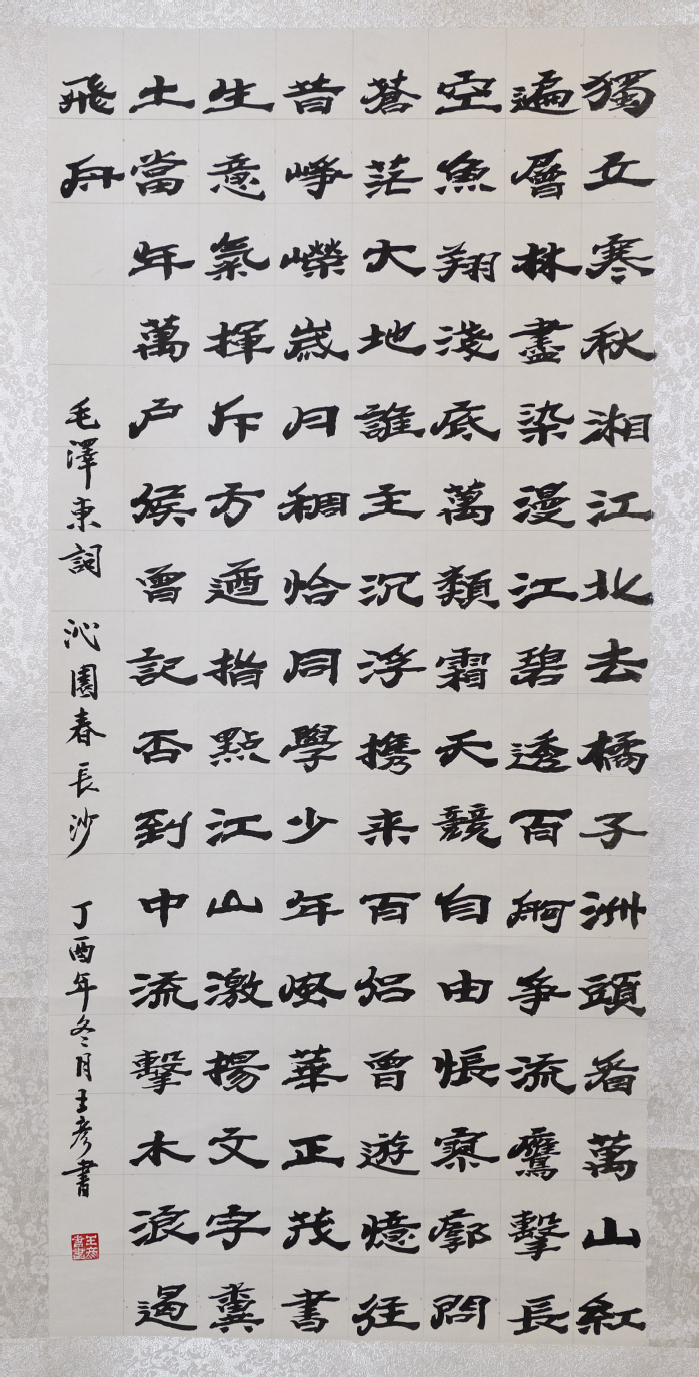 獨立寒秋湘江北去橘子洲頭看萬山紅
遍層林盡染漫江碧透百舸争流鷹擊長
空魚翔淺底萬類霜天競自由悵寥廓問
蒼茫大地誰主沉浮携来百侣曾遊憶往
昔崢嶸歲月稠恰同學少年風華正茂書
生意氣揮斥方遒指點江山激揚文字糞
土當年萬户侯曾記否到中流擊水浪遏
飛舟
毛澤東詞 沁園春長沙 丁酉年冬月王彦書